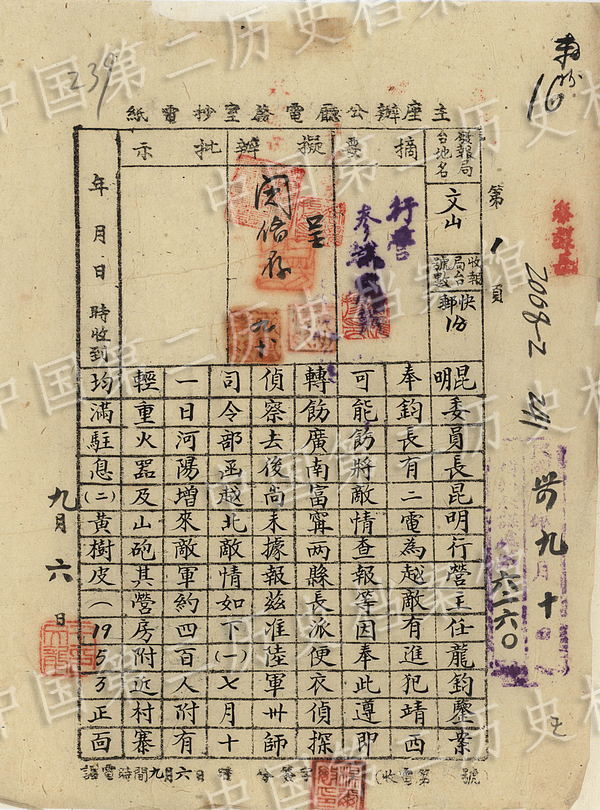 主座辦公廳電務室抄電紙
發報局台地名
文山
收報局台號數
快郵
18
第1頁
摘要
擬辦
批示
行營
呈
閱後存
年月日時收到
昆明委員長昆明行營主任龍鈞鑒案
奉鈞長有二電為越敵有進犯靖西
可能飭將敵情查報等因奉此遵即
轉飭廣南富寗兩縣長派便衣偵探
偵察去後尚未據報茲准陸軍卅師
司令部函越北敵情如下(一)七月十
一日河陽增來敵軍約四百人附有
輕重火器及山砲其營房附近村寨
均滿駐息(二)黃樹皮(1953正面
九月六日
239
16
2068-2
241
卅九月十
六一六〇
譯電時間九月六日 時 分
收電第 號
中国第二历史档案馆